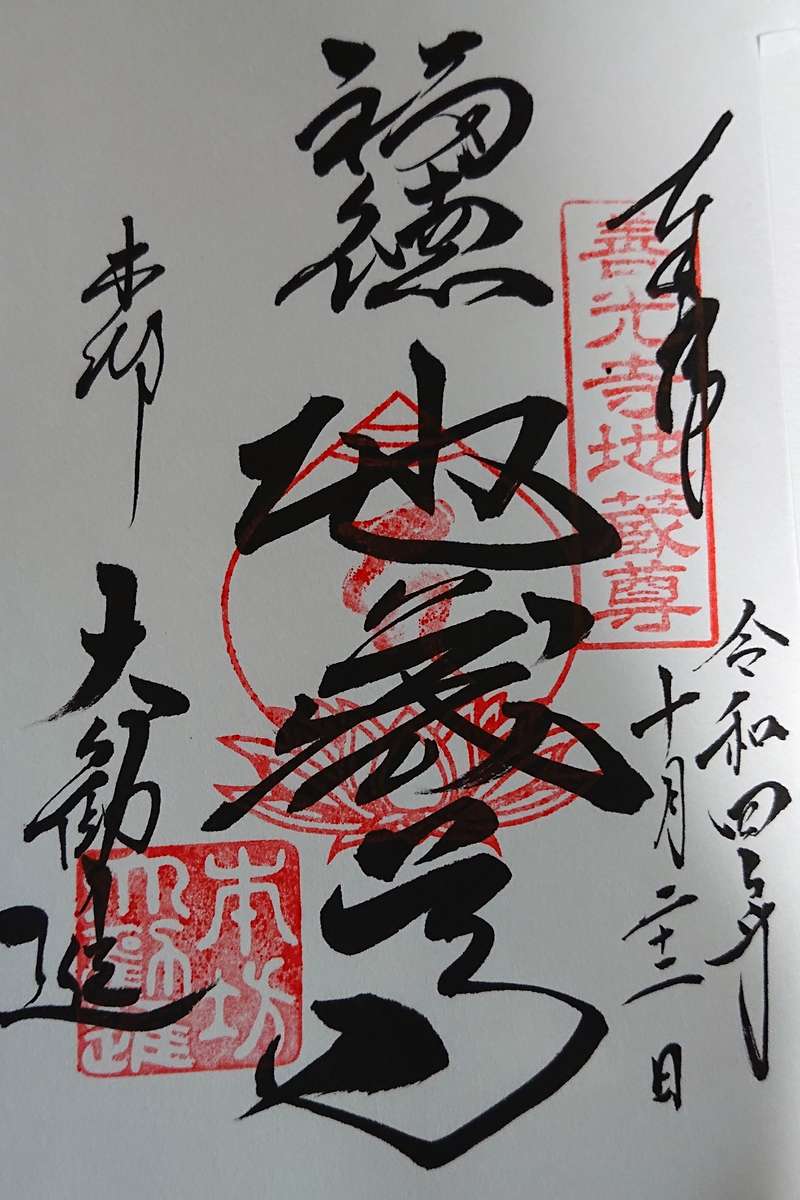 奉拝
善光寺地蔵尊
令和四年
十月二十二日
福徳
地蔵尊
本坊
大勧進
本坊
大勧進